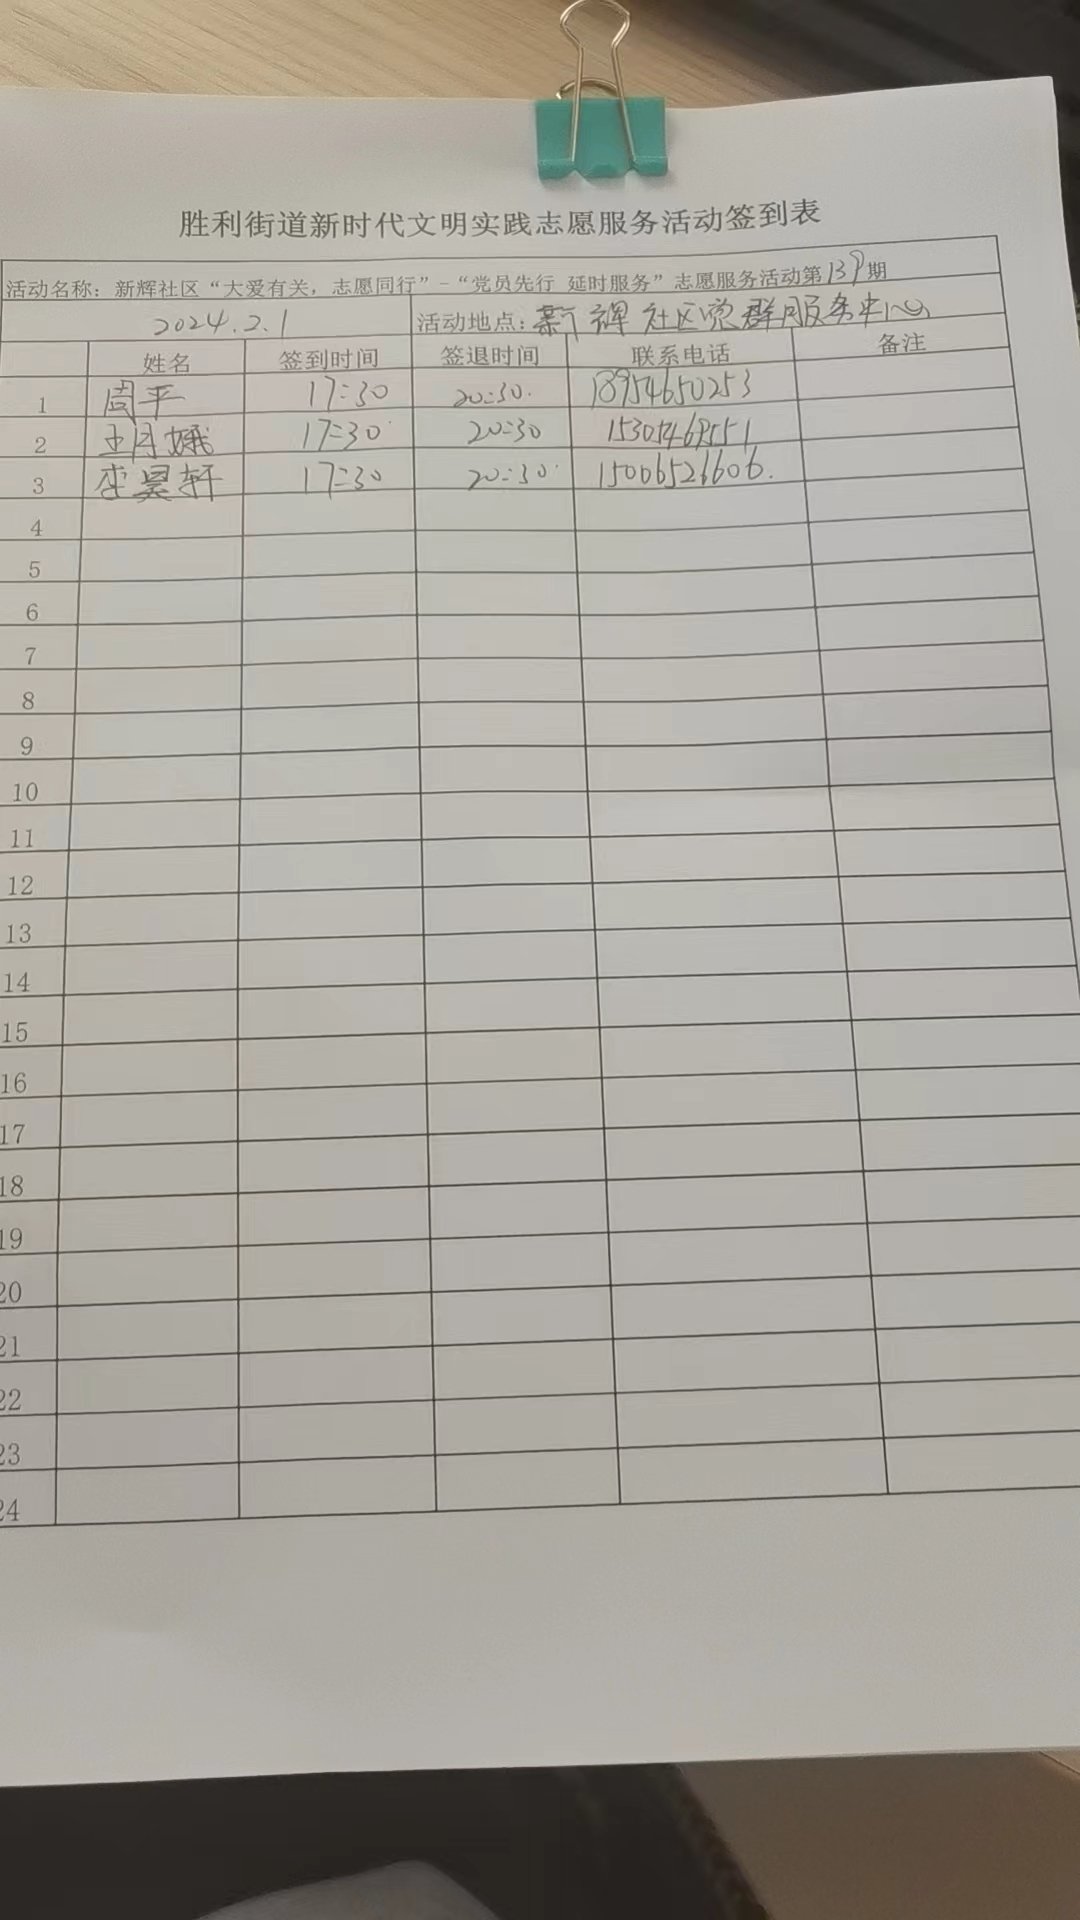 胜利街道新时代文明实践志愿服务活动签到表
活动名称：新辉社区“大爱有关，志愿同行”-“党员先行 延时服务”志愿服务活动第139期
2024.2.1 活动地点：新辉社区党群服务中心
姓名 签到时间 签退时间 联系电话 备注
1 周平 17:30 20:30 18954650253
2 王月娥 17:30 20:30
3 李昊轩 17:30 20:30 15006526606
4
5
6
7
8
9
10
11
12
13
14
15
16
17
18
19
20
21
22
23
24